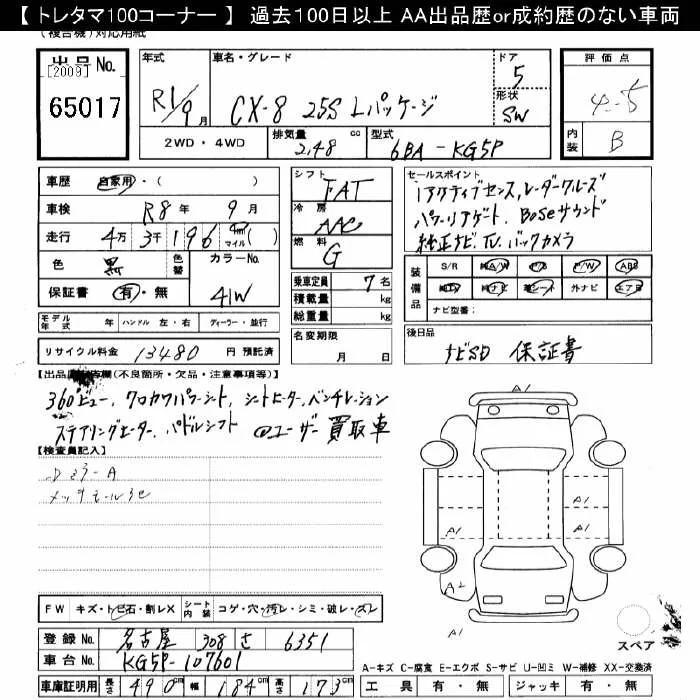 【 トレタマ100コーナー 】 過去100日以上 AA出品歴or成約歴のない車両
(複合機)対応用紙
出品No.
[2009]
65017
年式 車名・グレード ドア 評価点
R1/9月 CX-8 25S Lパッケージ 5 4.5
形状 SW
2WD・4WD 排気量 2,48 cc 型式 6BA-KG5P 内装 B
車歴 自家用・( )
車検 R8年 9月
走行 4万 3千 196 km マイル( )
色 黒 色替 カラーNo.
保証書 有・無 41W
シフト FAT
冷房 AAC
燃料 G
乗車定員 7名
積載量 kg
総重量 kg
名変期限 月 日
セールスポイント
iアクティブセンス,レーダークルーズ
パワーリアゲート、Boseサウンド
純正ナビ TV.バックカメラ
装備品 S/R 純A/W P/S P/W ABS
純TV 純ナビ 革シート 外ナビ エアB
ナビ型番:
モデル年式 年 ハンドル 左・右 ディーラー・並行
リサイクル料金 13480 円 預託済
後日品 ナビSD 保証書
(不良箇所・欠品・注意事項等)】
360°ビュー、クロカワパワーシート,シートヒーター,ベンチレーション
ステアリングヒーター、パドルシフト @ユーザー買取車
【検査員記入】
Dミラ-A
メッキモール
A1
A1 A1
A1 A1
A2
FW キズ・トビ石・割レX シート内装 コゲ・穴・汚レ・シミ・破レ・スレ
登録No. 名古屋 308 さ 6351
車台No. KG5P-107601
スペア
A-キズ C-腐食 E-エクボ S-サビ U-凹ミ W-補修 XX-交換済
車庫証明用 長さ 490cm 幅 184cm 高さ 173cm 工具 有・無 ジャッキ 有・無